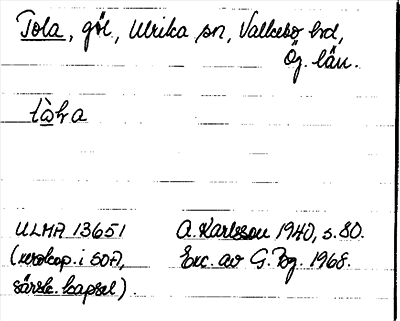 Tola, göl, Ulrika sn, Valkebo hd,
Ög. län.
tò̱ḷa
ULMA 13651 A. Karlsson 1940, s. 80.
(xerokop. i SOA, Exc. av G. Bg. 1968.
särsk. kapsel).